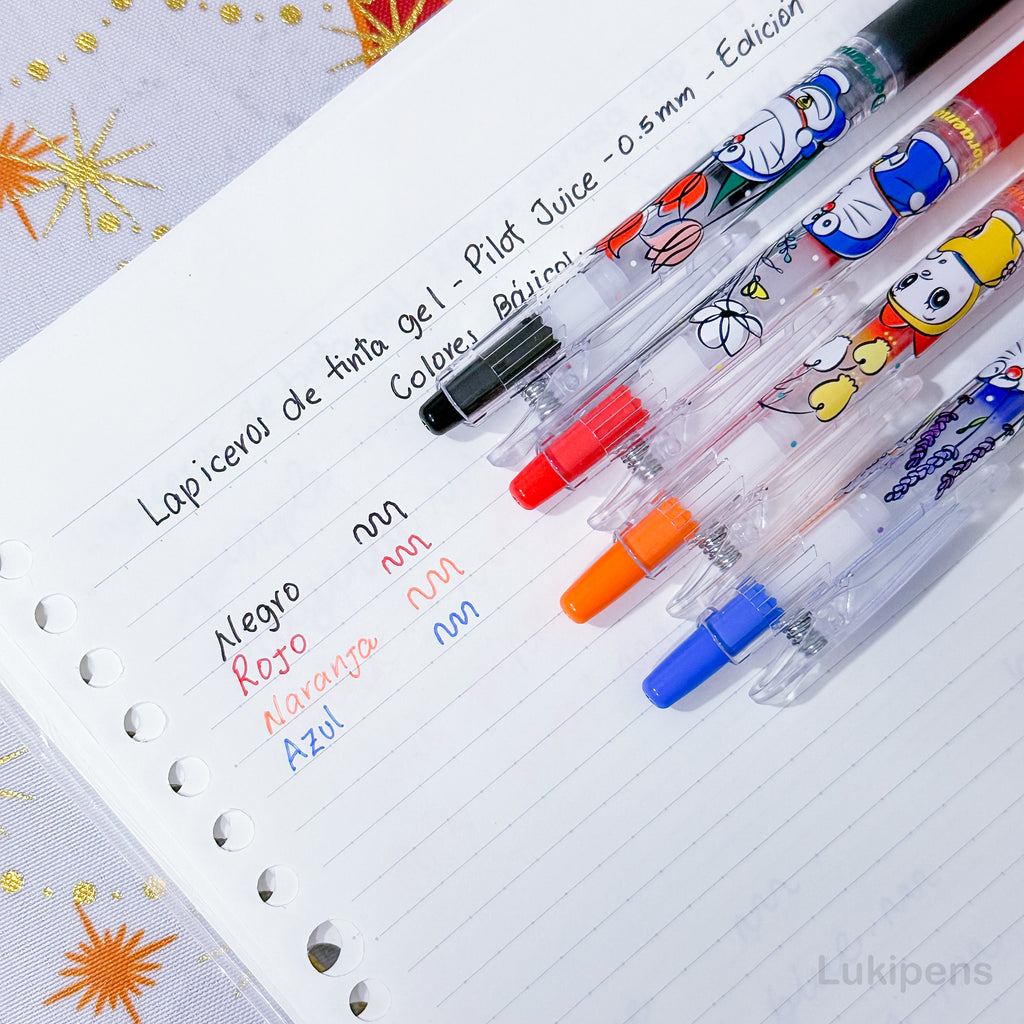 Lapiceros de tinta gel - Pilot Juice - 0.5mm - Edición
Colores Básicos
Negro
Rojo
Naranja
Azul
Doraemon
Doraemon
Lukipens